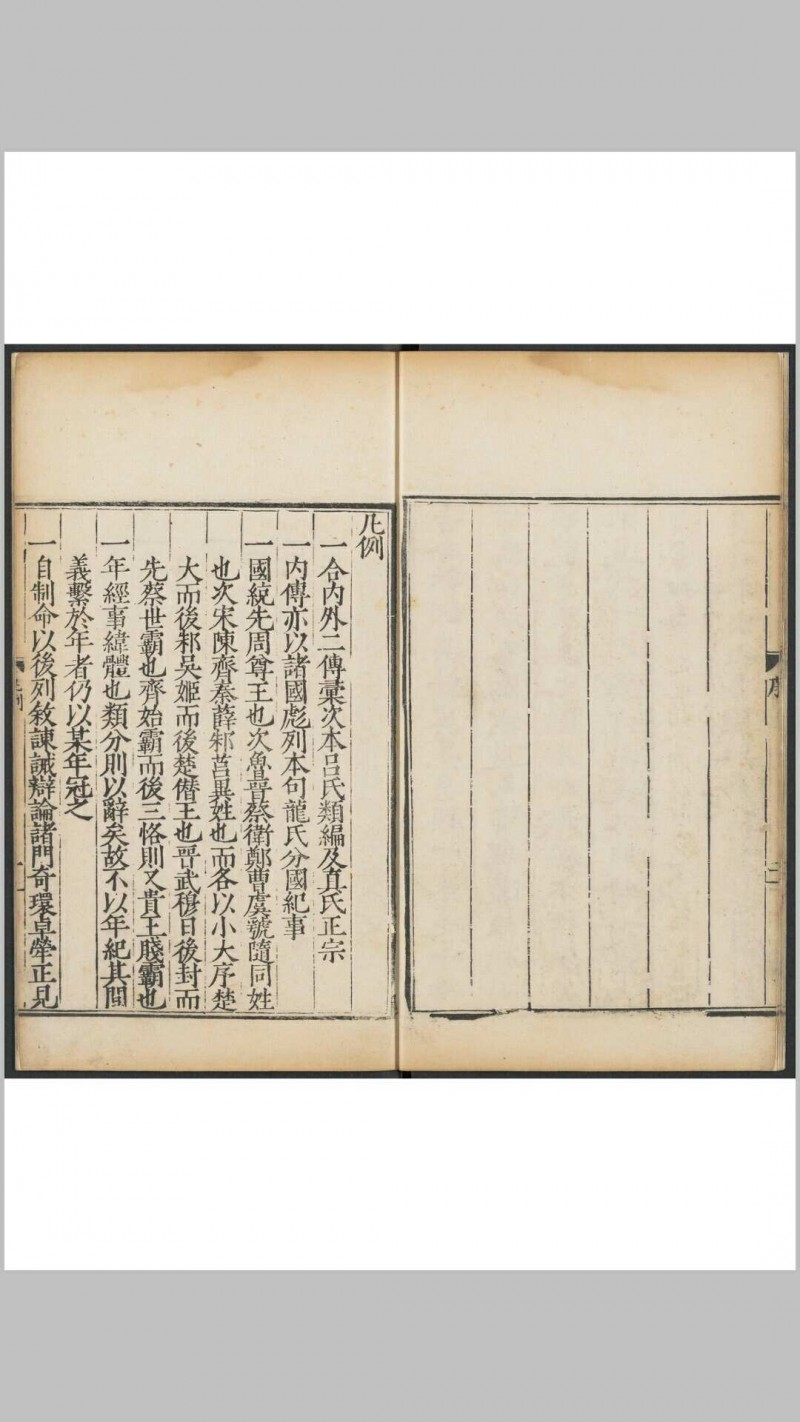 凡例
一合内外二傳彚次本吕氏類編及真氏正宗
一内傳亦以諸國彪列本句龍氏分國紀事
一國統先周尊王也次魯晉蔡衛鄭曹虞虢隨同姓
也次宋陳齊秦薛邾莒異姓也而各以小大序楚
大而後邾吳姬而後楚僭王也晉武穆日後封而
先蔡世霸也齊始霸而後三恪則又貴王賤霸也
一年經事緯體也類分則以辭矣故不以年紀其間
義繫於年者仍以某年冠之
一自制命以後列敘諫誡辯論諸門奇環卓犖正見
凡例
序